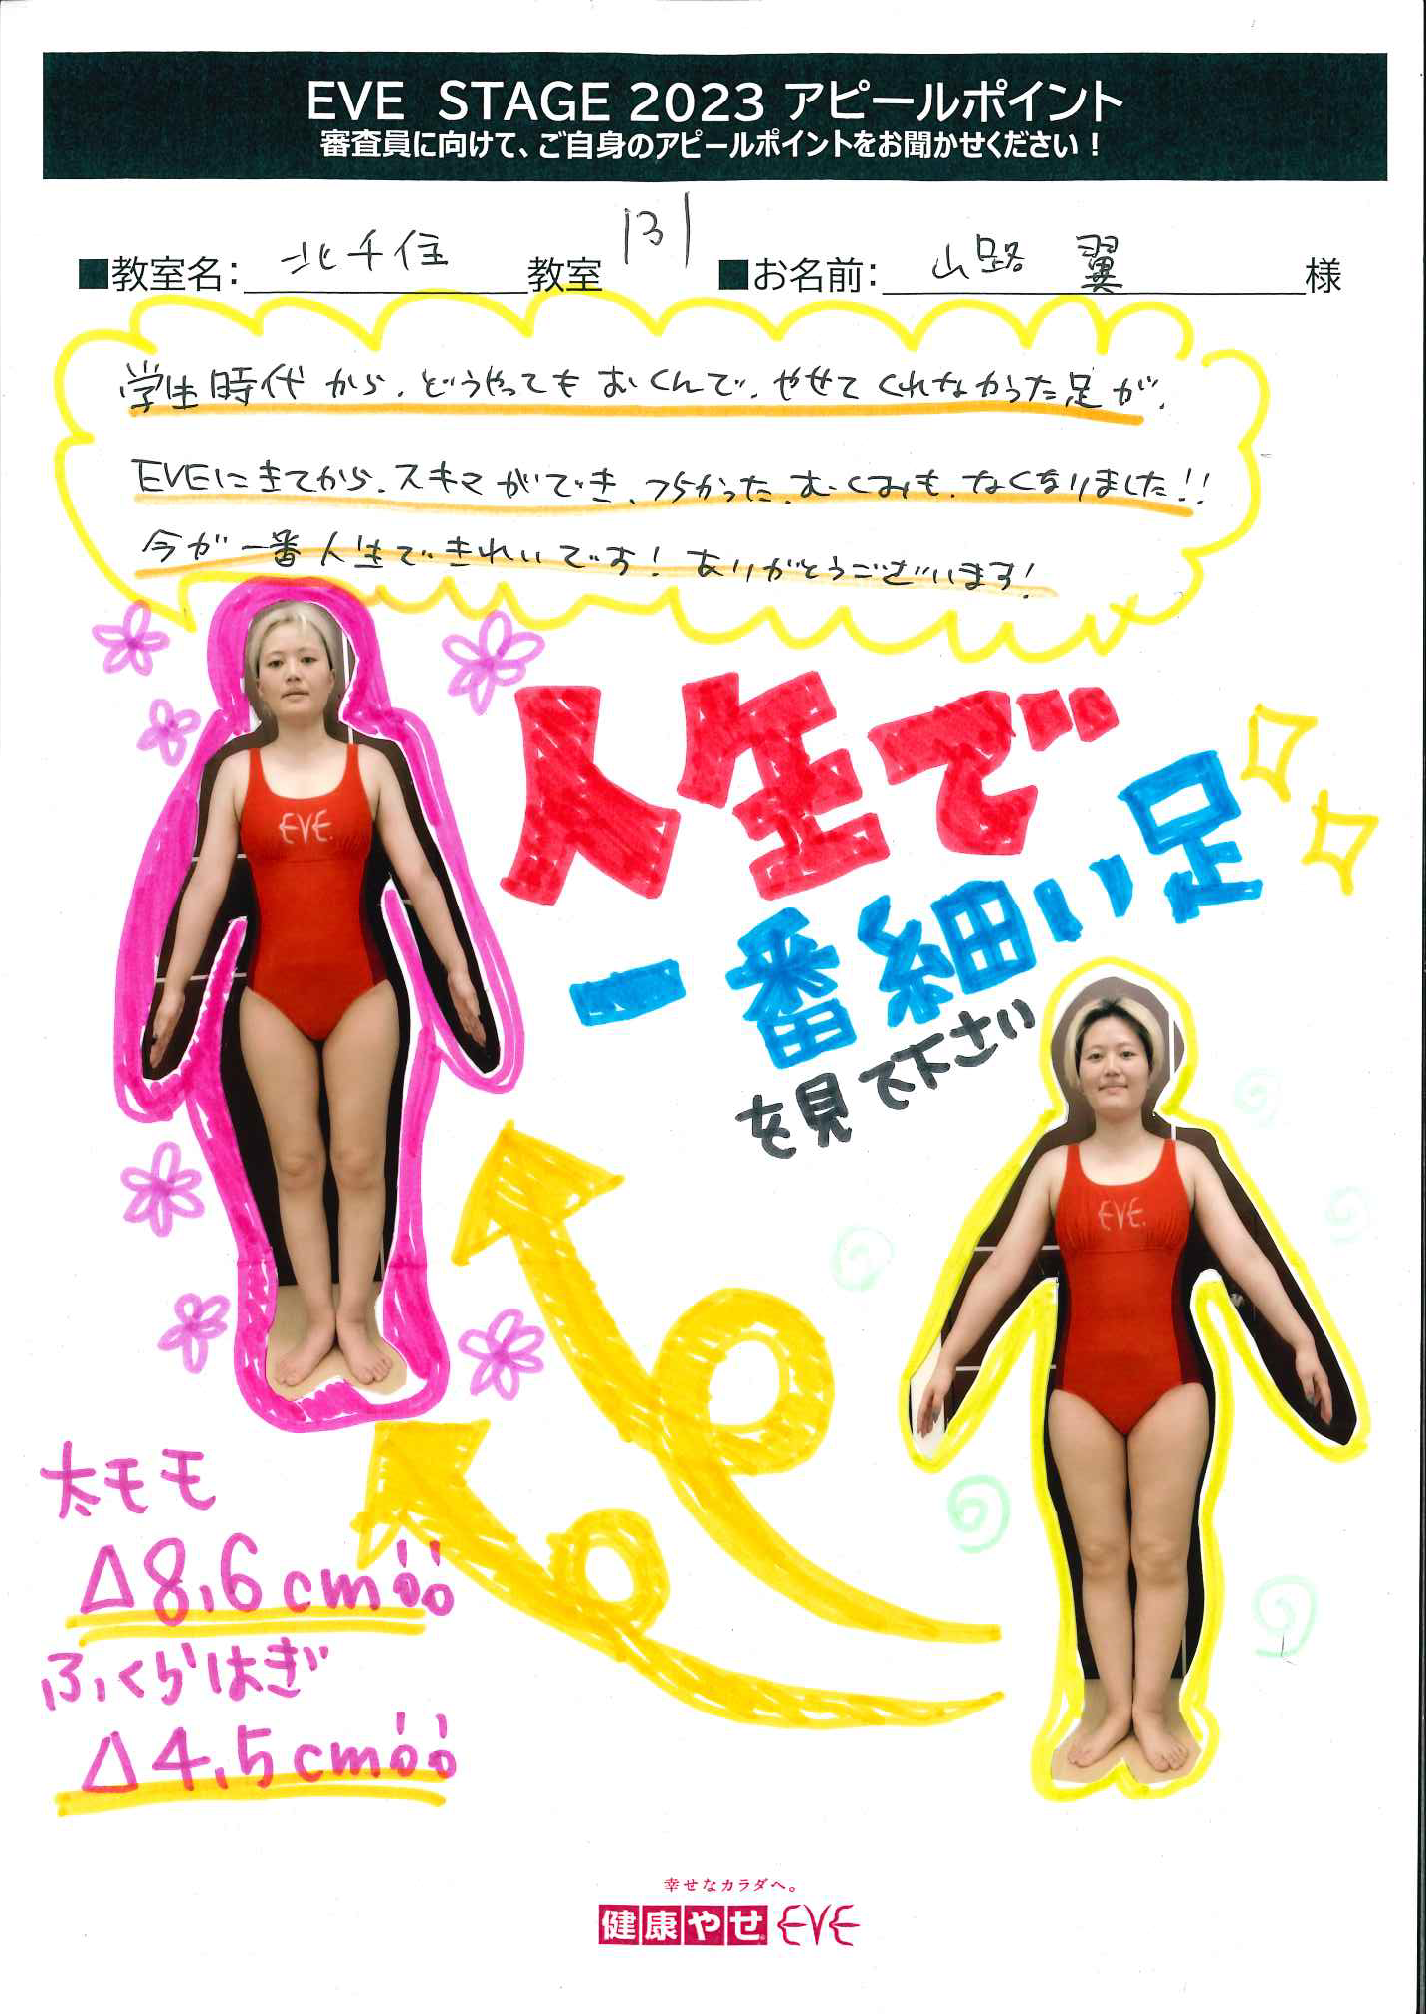 EVE STAGE 2023 アピールポイント
審査員に向けて、ご自身のアピールポイントをお聞かせください！
■教室名： 北千住 教室 131 ■お名前： 山路 翼 様
学生時代から、どうやってもむくんで、やせてくれなかった足が、
EVEにきてから、スキマができ、つらかった、むくみも、なくなりました!!
今が一番人生できれいです！ありがとうございます！
EVE.
人生で
一番細い足
を見て下さい
EVE.
太モモ
△8.6cm!!
ふくらはぎ
△4.5cm!!
幸せなカラダへ。
健康やせ EVE